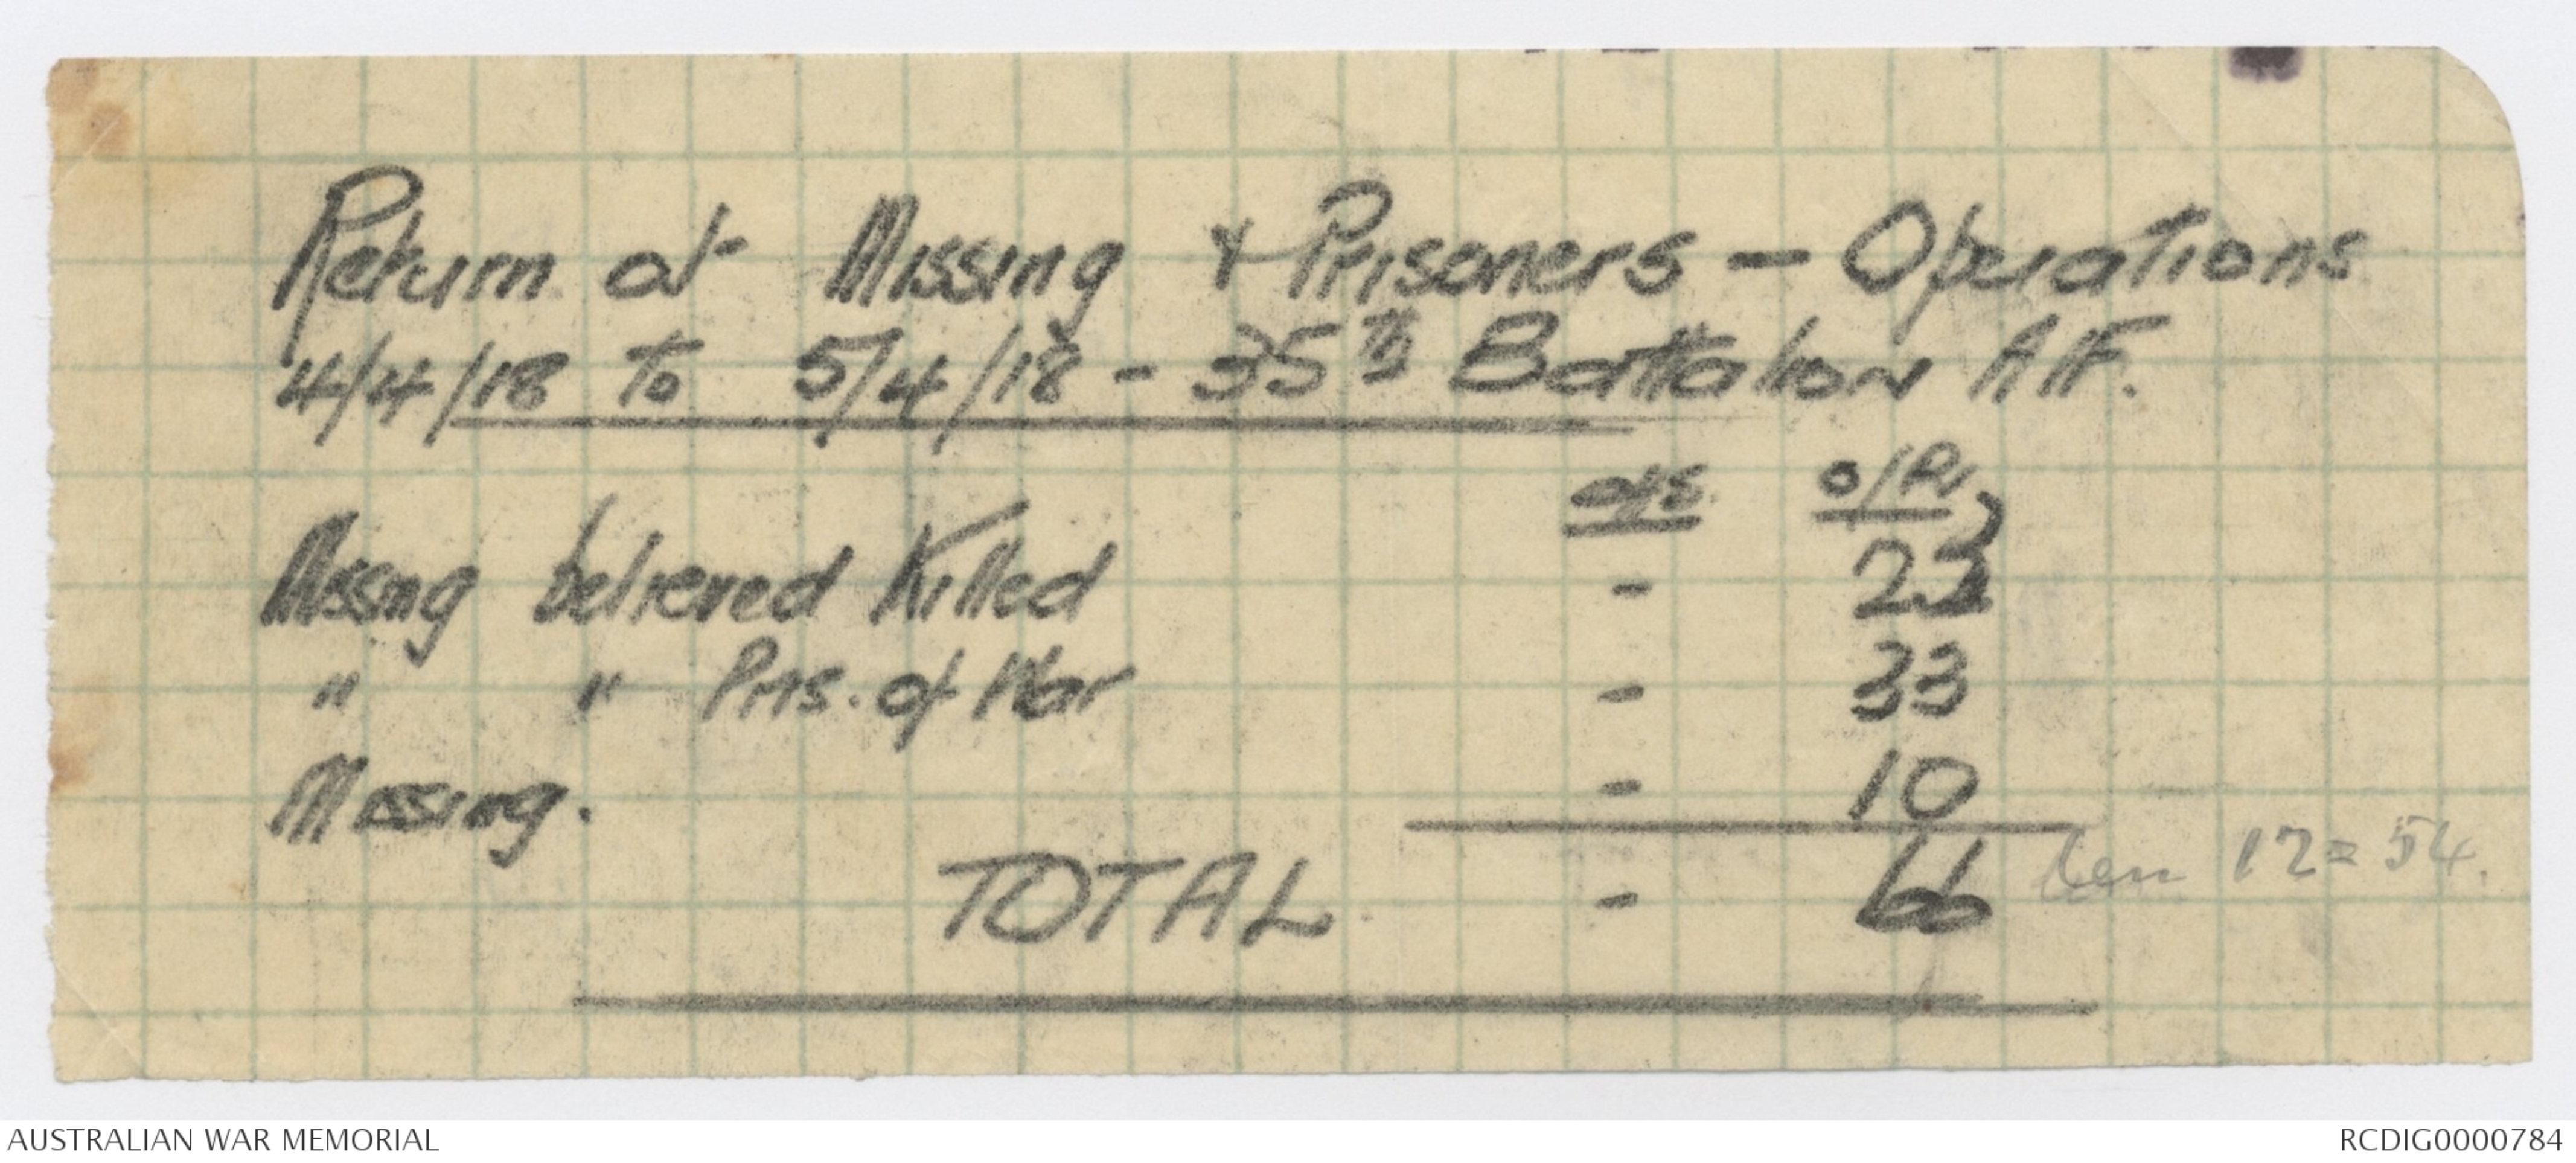 Return of Missing & Prisoners - Operations
4/4/18 to 5/4/18 - 35th Battalion AIF.
offs. o/Rs
Missing believed Killed - 23
" " Pris. of War - 33
Missing. - 10
TOTAL - 66 less 12 = 54.
AUSTRALIAN WAR MEMORIAL
RCDIG0000784